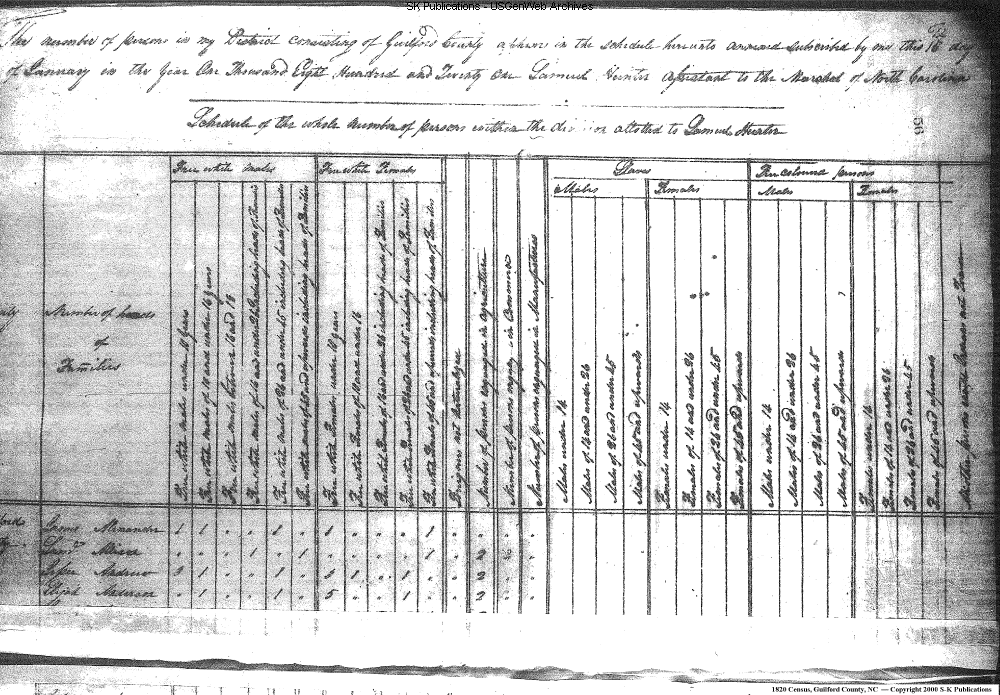 SK Publications - USGenWeb Archives
The number of persons in my District consisting of Guilford County appears in the schedule hereunto annexed subscribed by me this 16 day
of January in the Year One Thousand Eight Hundred and Twenty one Samuel Hunter assistant to the Marshal of North Carolina
Schedule of the whole number of persons within the division allotted to Samuel Hunter
56
Free white males
Free white Females
Slaves
Free coloured persons
Males
Females
Males
Females
Number of heads
of
Families
Free white males under 10 years
Free white males of 10 and under 16 years
Free white males between 16 and 18
Free white males of 16 and under 26 including heads of Families
Free white males of 26 and under 45 including heads of Families
Free white males of 45 and upwards including heads of Families
Free white Females under 10 years
Free white Females of 10 and under 16
Free white Females of 16 and under 26 including heads of Families
Free white Females of 26 and under 45 including heads of Families
Free white Females of 45 and upwards including heads of Families
Foreigners not naturalized
Number of persons engaged in agriculture
Number of persons engaged in Commerce
Number of persons engaged in Manufactures
Males under 14
Males of 14 and under 26
Males of 26 and under 45
Males of 45 and upwards
Females under 14
Females of 14 and under 26
Females of 26 and under 45
Females of 45 and upwards
Males under 14
Males of 14 and under 26
Males of 26 and under 45
Males of 45 and upwards
Females under 14
Females of 14 and under 26
Females of 26 and under 45
Females of 45 and upwards
Alexander 1 1 " " 1 " 1 " " " 1 " " " "
Saml " " " 1 " 1 " " " " 1 " 2 " "
Andrew 3 1 " " 1 " 3 1 " 1 " " 2 " "
Elijah Anderson " 1 " " 1 " 5 " " 1 " " 2 " "
1820 Census, Guilford County, NC — Copyright 2000 S-K Publications